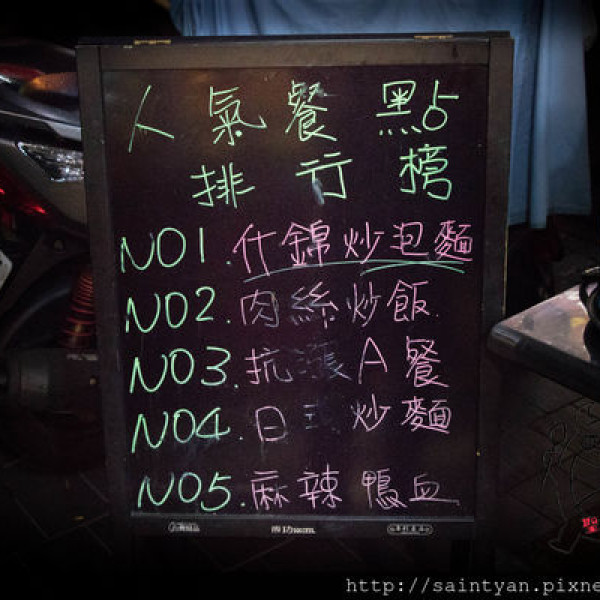 人氣餐點
排行榜
NO1.什錦炒泡麵
NO2.肉絲炒飯
NO3.抗漲A餐
NO4.日式炒麵
NO5.麻辣鴨血
http://saintyan.pixne